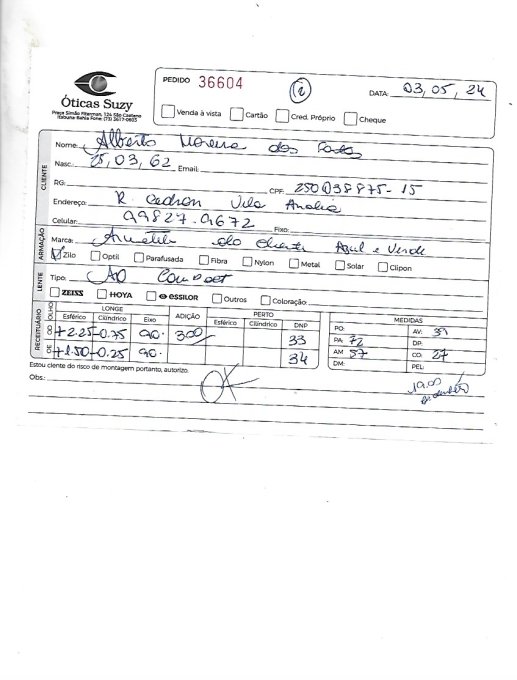 Óticas Suzy
Praça Simão Fiterman, 124 São Caetano
Itabuna-Bahia Fone: (73) 3617-0603
PEDIDO 36604
DATA: 03,05,24
Venda à vista Cartão Cred. Próprio Cheque
CLIENTE
Nome: Alberto Moreira dos
Nasc.: 15,03,62 Email:
RG: CPF: 38875-15
Endereço: R Cedron Vila Analia
Celular: 99827-9672 Fixo:
ARMAÇÃO
Marca: Armação do cliente Azul e Verde
Zilo Optil Parafusada Fibra Nylon Metal Solar Clipon
LENTE
Tipo: AO Compact
ZEISS HOYA essilor Outros Coloração:
RECEITUÁRIO
OLHO LONGE ADIÇÃO PERTO MEDIDAS
Esférico Cilíndrico Eixo Esférico Cilíndrico DNP
+2.25 -0.75 90. 300 33
+1.50 -0.25 90. 34
PO: AV: 31
PA: 72 DP:
AM 57 CO: 27
DM: PEL:
Estou ciente do risco de montagem portanto, autorizo:
Obs.: OK
19,00